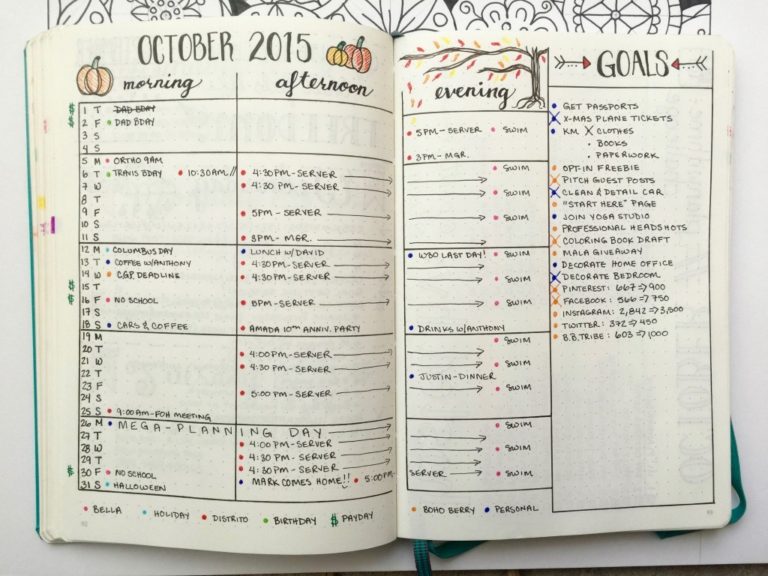 OCTOBER 2015
morning
afternoon
1 T DAD BDAY
2 F DAD BDAY
3 S
4 S
5 M ORTHO 9AM
6 T TRAVIS BDAY 10:30AM
4:30PM-SERVER
7 W
4:30 PM-SERVER
8 T
9 F
5PM-SERVER
10 S
11 S
3PM-MGR.
12 M COLUMBUS DAY
LUNCH W/DAVID
13 T COFFEE W/ANTHONY
4:30PM-SERVER
14 W CGP DEADLINE
4:30PM-SERVER
15 T
16 F NO SCHOOL
5PM-SERVER
17 S
18 S CARS & COFFEE
AMADA 10TH ANNIV. PARTY
19 M
20 T
4:00PM-SERVER
21 W
4:30 PM-SERVER
22 T
23 F
5:00PM-SERVER
24 S
25 S 9:00AM-FOH MEETING
26 M MEGA-PLANNING DAY
27 T
4:00 PM-SERVER
28 W
4:30PM-SERVER
29 T
4:30 PM-SERVER
30 F NO SCHOOL
MARK COMES HOME!! 5:00PM-
31 S HALLOWEEN
BELLA HOLIDAY DISTRITO BIRTHDAY $ PAYDAY
evening
5PM-SERVER SWIM
3PM-MGR.
SWIM
SWIM
SWIM
W80 LAST DAY! SWIM
SWIM
SWIM
DRINKS W/ANTHONY
SWIM
SWIM
JUSTIN-DINNER
SWIM
SWIM
SWIM
SERVER SWIM
BOHO BERRY PERSONAL
GOALS
GET PASSPORTS
X-MAS PLANE TICKETS
KM X CLOTHES
• BOOKS
• PAPERWORK
OPT-IN FREEBIE
PITCH GUEST POSTS
CLEAN & DETAIL CAR
"START HERE" PAGE
JOIN YOGA STUDIO
PROFESSIONAL HEADSHOTS
COLORING BOOK DRAFT
MALA GIVEAWAY
DECORATE HOME OFFICE
DECORATE BEDROOM
PINTEREST: 667⇒900
FACEBOOK: 566⇒750
INSTAGRAM: 2,842⇒3,500
TWITTER: 372⇒450
B.B.TRIBE: 603⇒1000